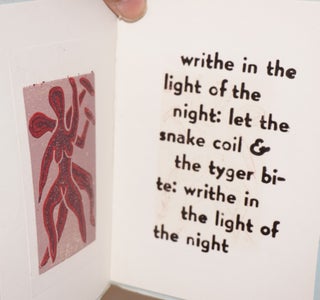 writhe in the
light of the
night: let the
snake coil &
the tyger bi-
te: writhe in
the light of
the night